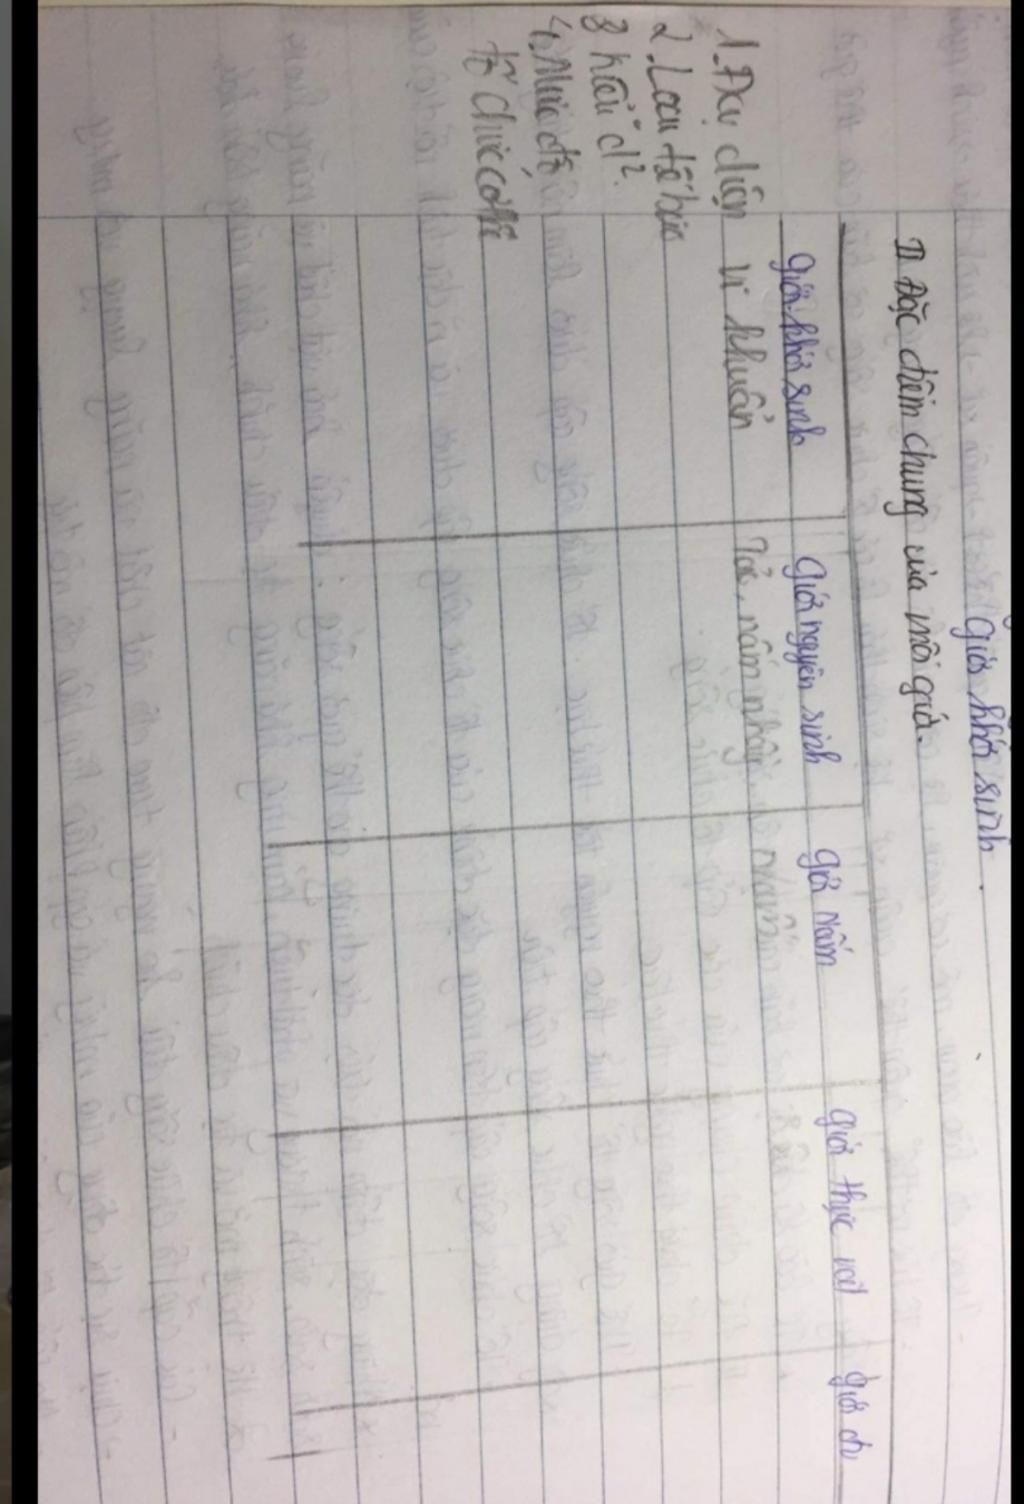 Giới khởi sinh.
II Đặc điểm chung của mỗi giới.
giới khởi sinh giới nguyên sinh giới nấm giới thực vật giới đv
1. Đại diện vi khuẩn Tảo, nấm nhầy,
2. Loại tế bào
3 kiểu d²
4. Mức độ
tổ chức cơ thể